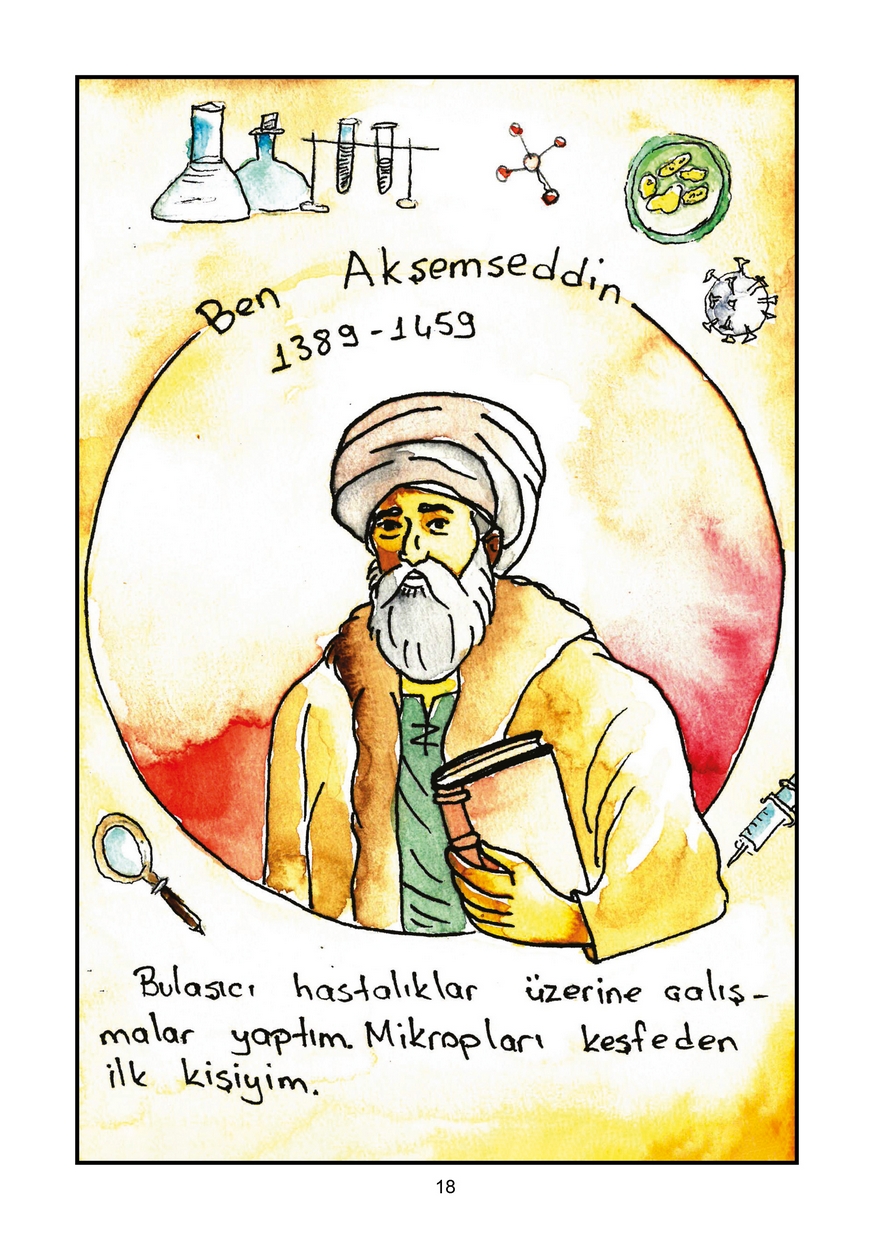 Ben Akşemseddin.
1389-1459
Bulaşıcı hastalıklar üzerine çalış-
malar yaptım. Mikropları keşfeden
ilk kişiyim.
18